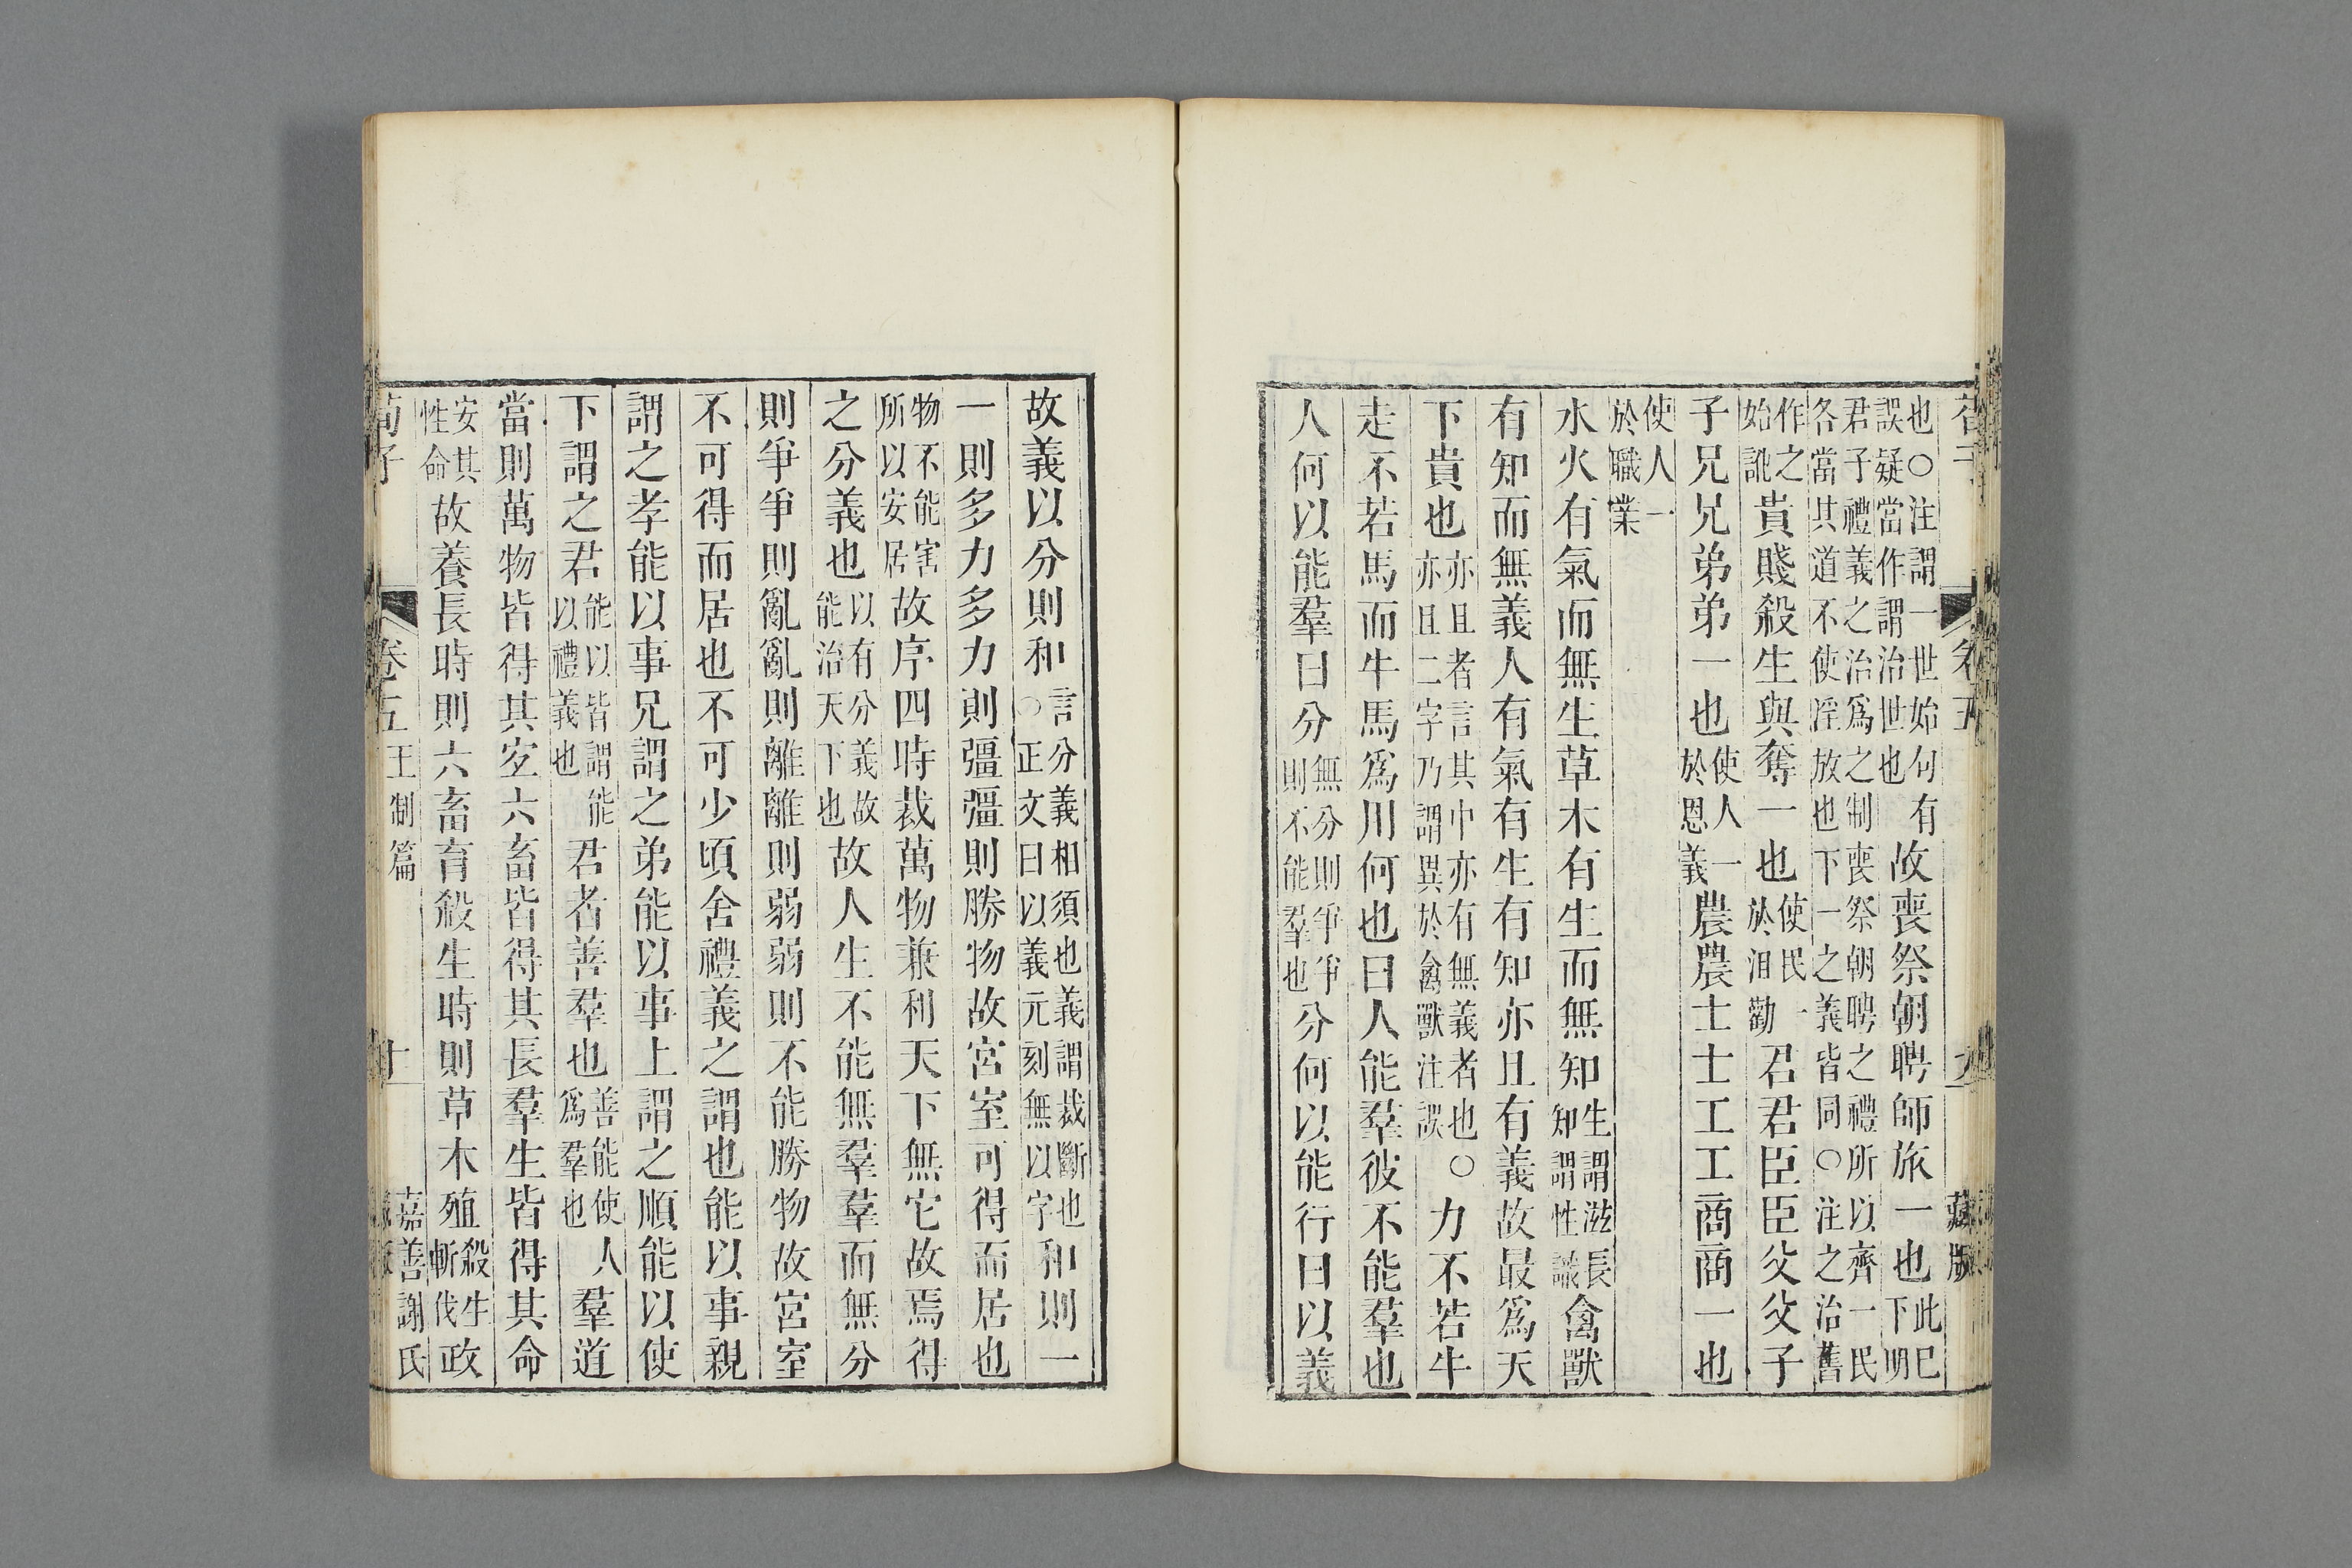 也○注謂一世始句有誤疑當作謂治世也故喪祭朝聘師旅一也此已下明
君子禮義之治爲之制喪祭朝聘之禮所以齊一民各當其道不使淫放也下一之義皆同○注之治舊
作之始訛貴賤殺生與奪一也使民一於沮勸君君臣臣父父子
子兄兄弟弟一也使人一於恩義農農士士工工商商一也
使人一於職業
水火有氣而無生草木有生而無知生謂滋長知謂性識禽獸
有知而無義人有氣有生有知亦且有義故最爲天
下貴也亦且者言其中亦有無義者也○亦且二字乃謂異於禽獸注誤力不若牛
走不若馬而牛馬爲用何也曰人能羣彼不能羣也
人何以能羣曰分無分則爭爭則不能羣也分何以能行曰以義
故義以分則和言分義相須也義謂裁斷也○正文曰以義元刻無以字和則一
一則多力多力則彊彊則勝物故宮室可得而居也
物不能害所以安居故序四時裁萬物兼利天下無它故焉得
之分義也以有分義故能治天下也故人生不能無羣羣而無分
則爭爭則亂亂則離離則弱弱則不能勝物故宮室
不可得而居也不可少頃舍禮義之謂也能以事親
謂之孝能以事兄謂之弟能以事上謂之順能以使
下謂之君能以皆謂能以禮義也君者善羣也善能使人爲羣也羣道
當則萬物皆得其宐六畜皆得其長羣生皆得其命
安其性命故養長時則六畜育殺生時則草木殖殺生斬伐政
荀子
卷五王制篇
十
嘉善謝氏
藏版